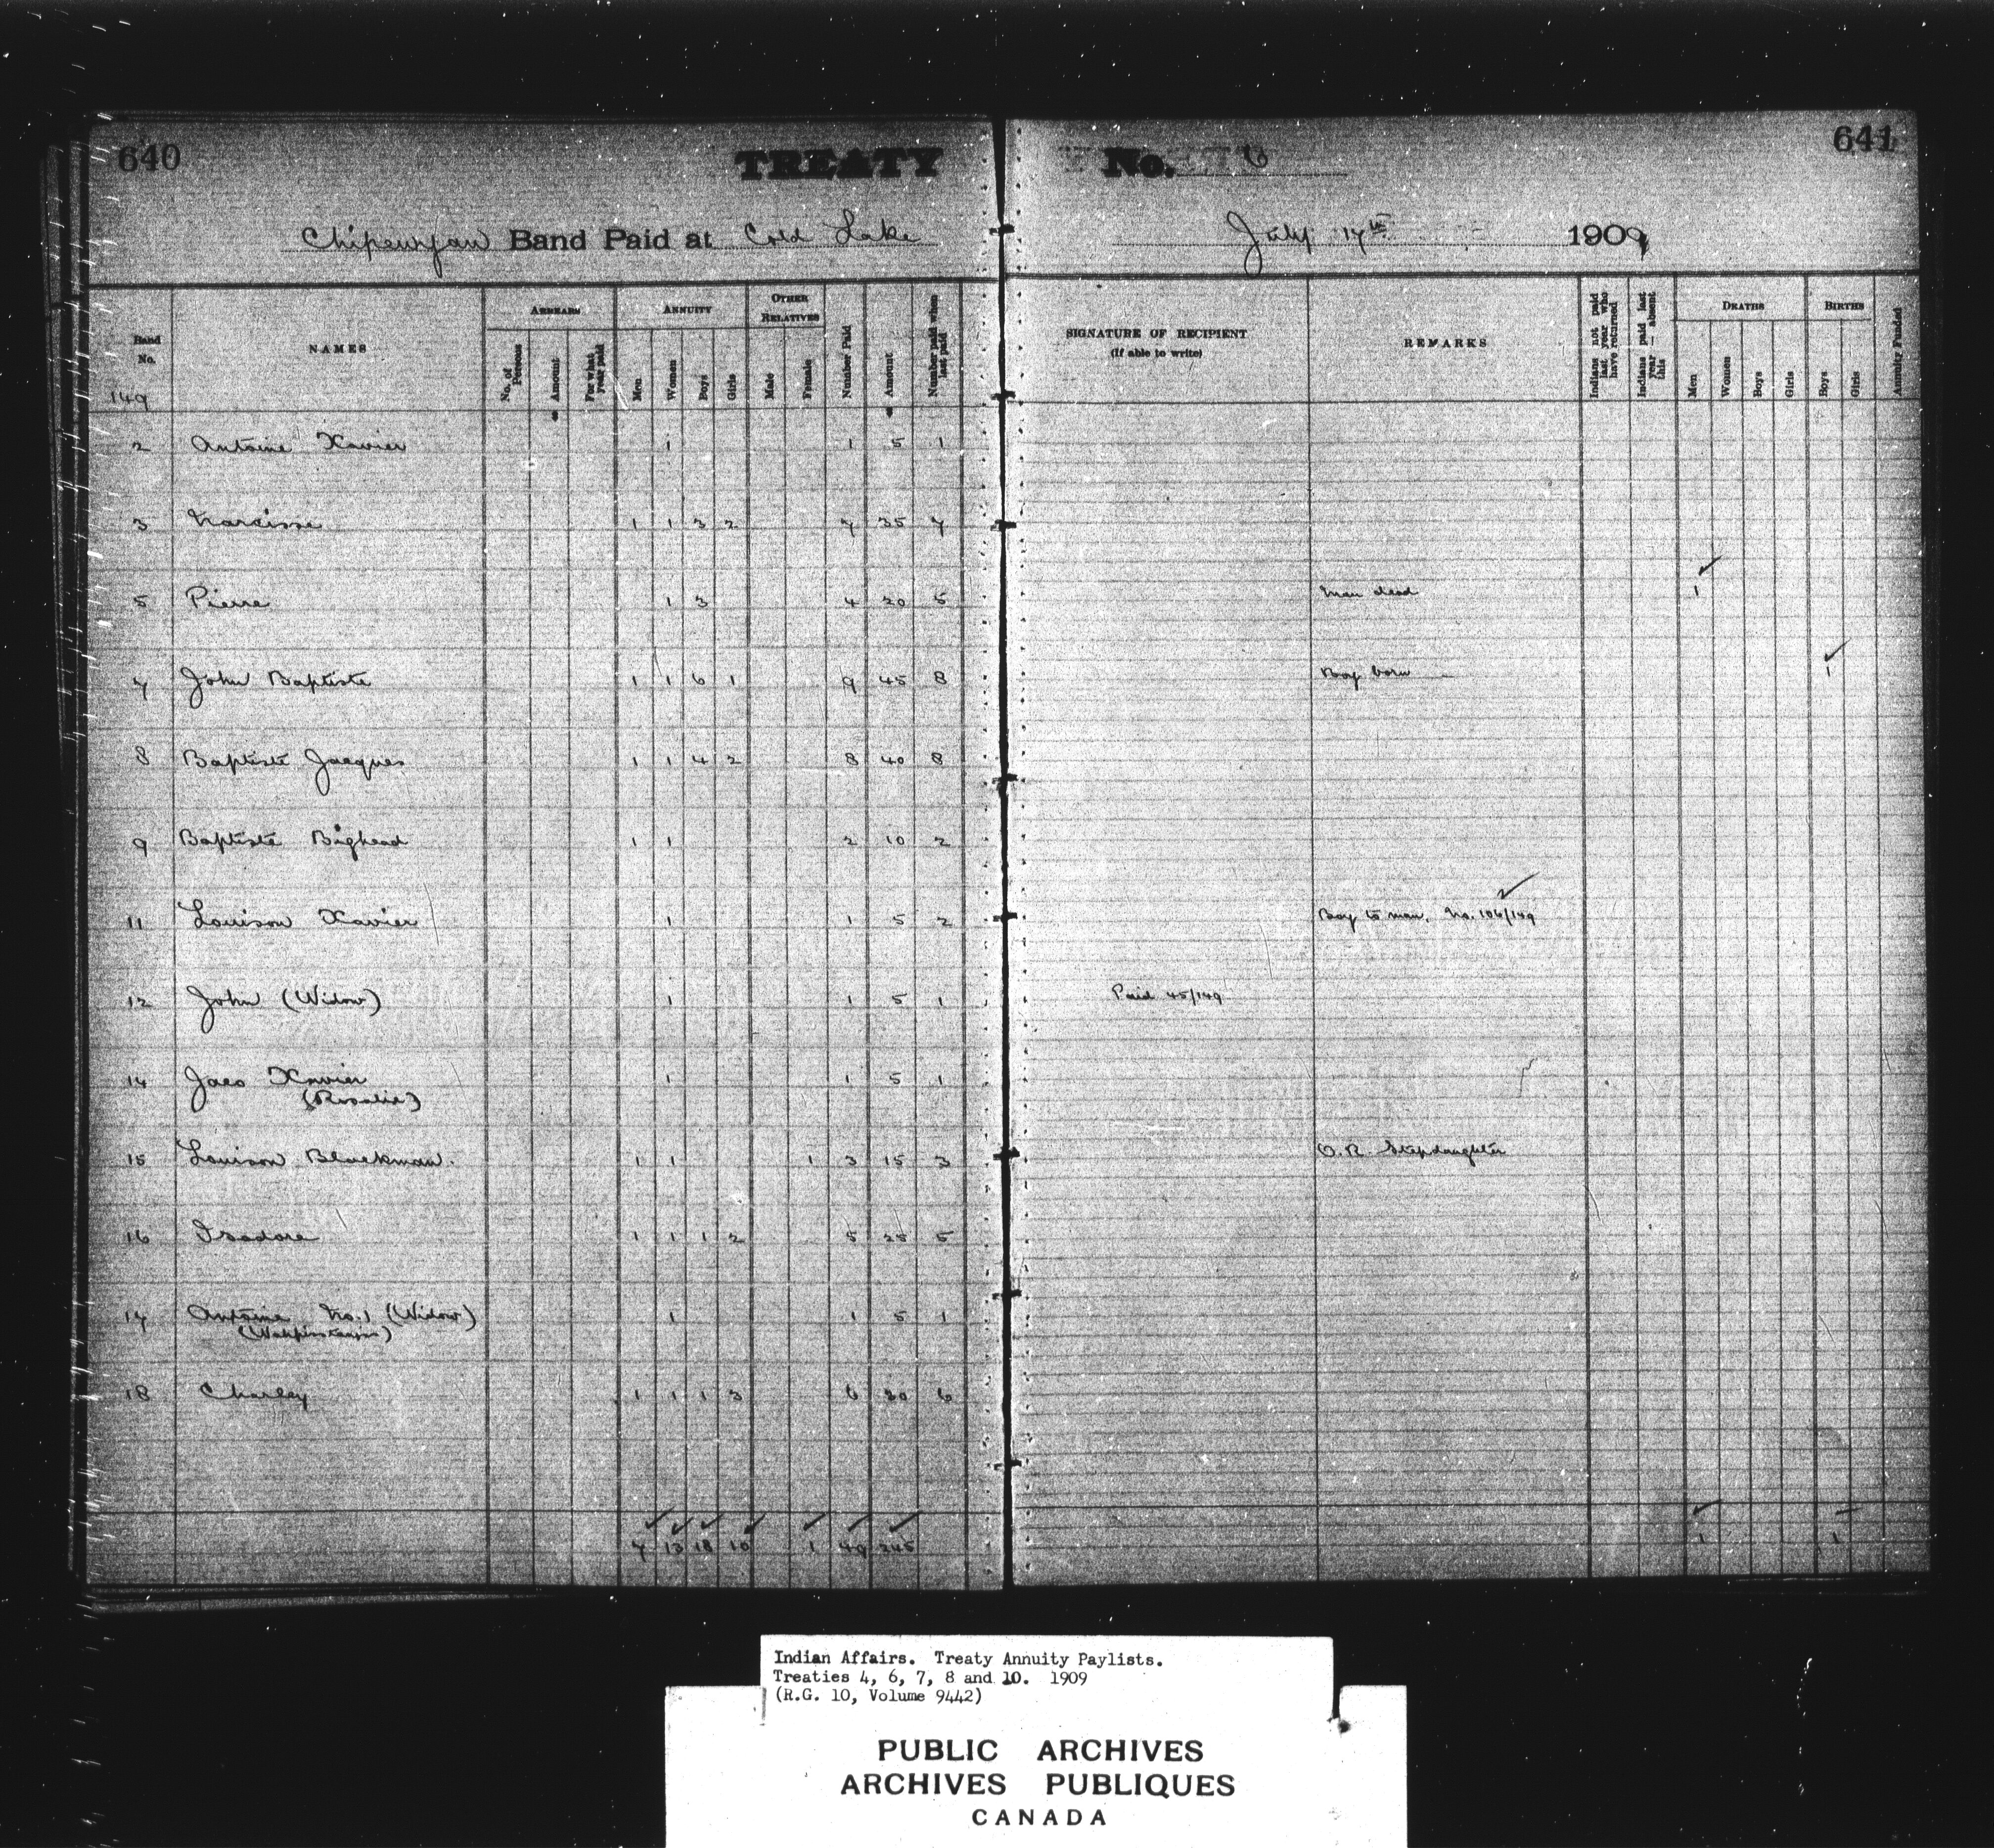 640
TREATY No. 6
641
Chipewyan Band Paid at Cold Lake July 17th 1909
Band No. NAMES ARREARS ANNUITY OTHER RELATIVES
No. of Persons Amount For what year paid Men Women Boys Girls Male Female Number Paid Amount Number paid when last paid
SIGNATURE OF RECIPIENT (If able to write) REMARKS Indians not paid last year who have returned Indians paid last year — absent this DEATHS BIRTHS Annuity Funded
Men Women Boys Girls Boys Girls
149
2 Antoine Xavier 1 1 5 1
3 Narcisse 1 1 3 2 7 35 7
5 Pierre 1 3 4 20 5 Man dead 1
7 John Baptiste 1 1 6 1 9 45 8 Boy born 1
8 Baptiste Jacques 1 1 4 2 8 40 8
9 Baptiste Bighead 1 1 2 10 2
11 Louison Xavier 1 1 5 2 Boy to man. No. 106/149
12 John (Widow) 1 1 5 1 Paid 45/149
14 Jaco Xavier 1 1 5 1
(Rosalie)
15 Louison Blackman. 1 1 1 3 15 3 O.R. Stepdaughter
16 Isadore 1 1 1 2 5 25 5
17 Antoine No. 1 (Widow) 1 1 5 1
18 Charley 1 1 1 3 6 30 6
7 13 18 10 1 49 245 1 1
Indian Affairs. Treaty Annuity Paylists.
Treaties 4, 6, 7, 8 and 10. 1909
(R.G. 10, Volume 9442)
PUBLIC ARCHIVES
ARCHIVES PUBLIQUES
CANADA